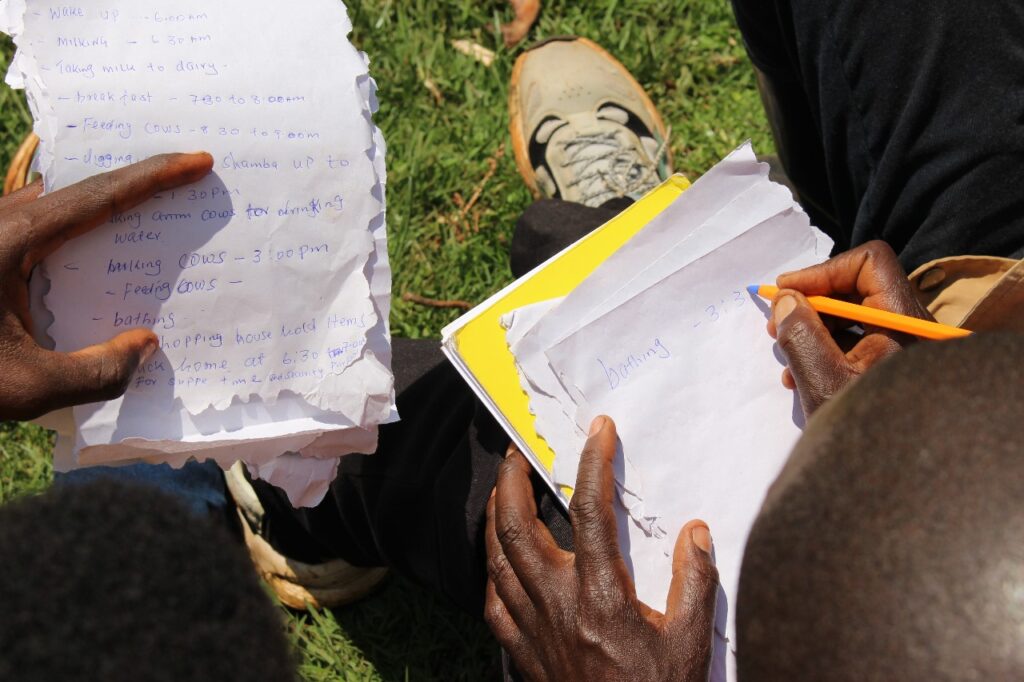 - Wake up - 6.00am
- Milking - 6 30 am
- Taking milk to dairy.
- break fast - 7:30 to 8.00am
- Feeding cows - 8 30 to 9.00am
- digging shamba up to
1 30pm
cows for drinking
water.
cows - 3:00pm
- Feeding cows -
- bathing
hopping house hold items
home at 6:30
For suppe
bathing - 3:3